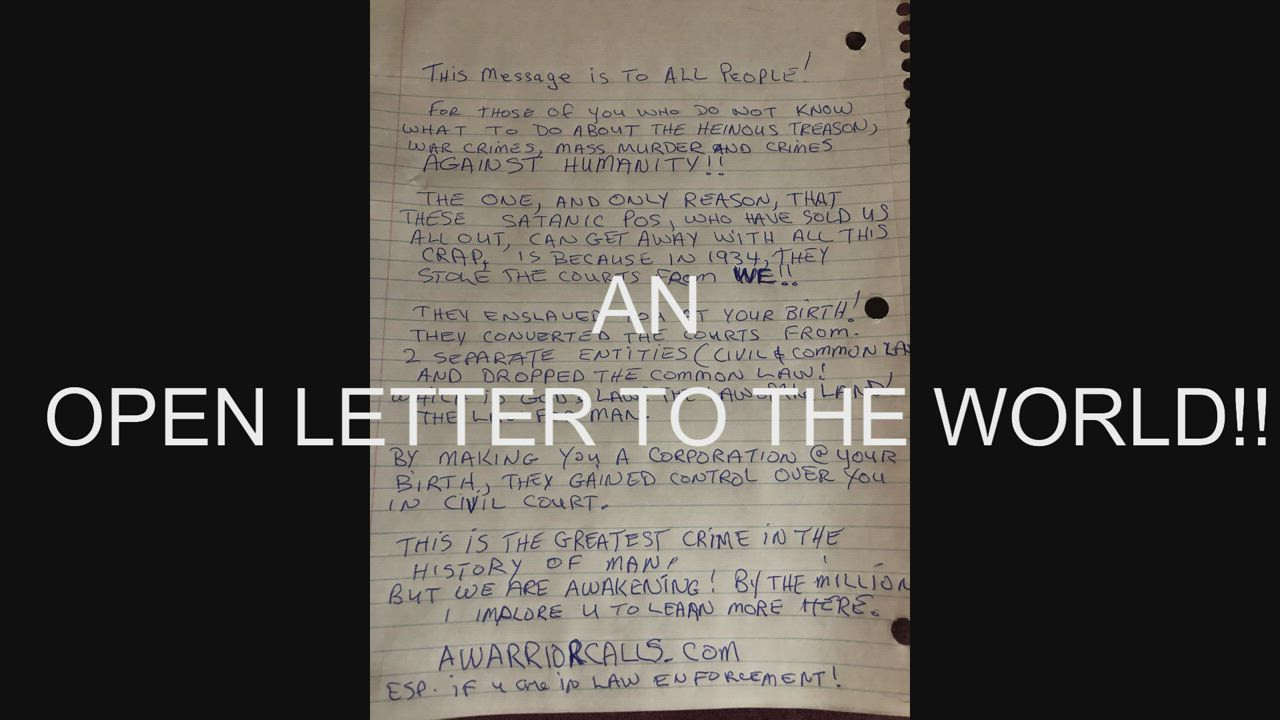 This Message is To ALL PEOPLE!
FOR THOSE OF YOU WHO DO NOT KNOW
WHAT TO DO ABOUT THE HEINOUS TREASON,
WAR CRIMES, MASS MURDER AND CRIMES
AGAINST HUMANITY!!
THE ONE, AND ONLY REASON, THAT
THESE SATANIC POS, WHO HAVE SOLD US
ALL OUT, CAN GET AWAY WITH ALL THIS
CRAP, IS BECAUSE IN 1934, THEY
STOLE THE COURTS FROM WE!!
AN
THEY ENSLAVED AT YOUR BIRTH!
THEY CONVERTED THE COURTS FROM.
2 SEPARATE ENTITIES (CIVIL & COMMON LA
AND DROPPED THE COMMON LAW!
LAND!
THE MAN.
OPEN LETTER TO THE WORLD!!
BY MAKING YOU A CORPORATION @ YOUR
BIRTH, THEY GAINED CONTROL OVER YOU
IN CIVIL COURT.
THIS IS THE GREATEST CRIME IN THE
HISTORY OF MAN!
BUT WE ARE AWAKENING! BY THE MILLION
I IMPLORE U TO LEARN MORE HERE.
AWARRIORCALLS.COM
ESP. IF U are in LAW ENFORCEMENT!